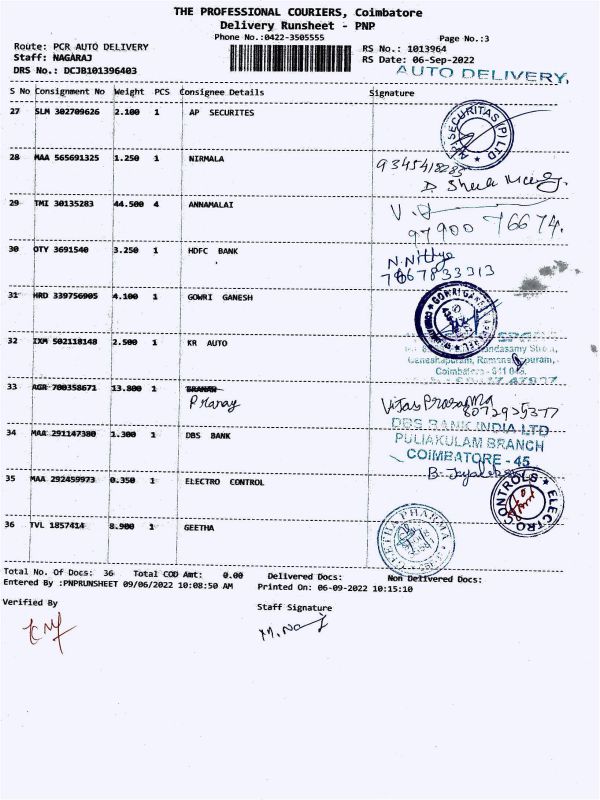 THE PROFESSIONAL COURIERS, Coimbatore
Delivery Runsheet - PNP
Phone No.:0422-3505555
Page No.:3
Route: PCR AUTO DELIVERY
RS No.: 1013964
Staff: NAGARAJ
RS Date: 06-Sep-2022
DRS No.: DCJB101396403
AUTO DELIVERY,
S No Consignment No Weight PCS Consignee Details Signature
27 SLM 302709626 2.100 1 AP SECURITES
SECURITAS (P) LTD
28 MAA 565691325 1.250 1 NIRMALA
9345418285
29 TMI 30135283 44.500 4 ANNAMALAI
97900 76674.
30 OTY 3691540 3.250 1 HDFC BANK
N. Nithya
7667833313
31 HRD 339756905 4.100 1 GOWRI GANESH
GOWRI GANESH
32 IXM 502118148 2.500 1 KR AUTO
Ganeshapuram, Ramana
33 AGR 700358671 13.800 1
Pranay
Vijas Prasanna
8072925377
34 MAA 291147380 1.300 1 DBS BANK
DBS BANK INDIA LTD
PULIAKULAM BRANCH
COIMBATORE - 45
35 MAA 292459973 0.350 1 ELECTRO CONTROL
ELECTRO CONTROLS
36 TVL 1857414 8.900 1 GEETHA
GEETHA PHARMA
Total No. Of Docs: 36 Total COD Amt: 0.00 Delivered Docs: Non Delivered Docs:
Entered By :PNPRUNSHEET 09/06/2022 10:08:50 AM Printed On: 06-09-2022 10:15:10
Verified By
Staff Signature